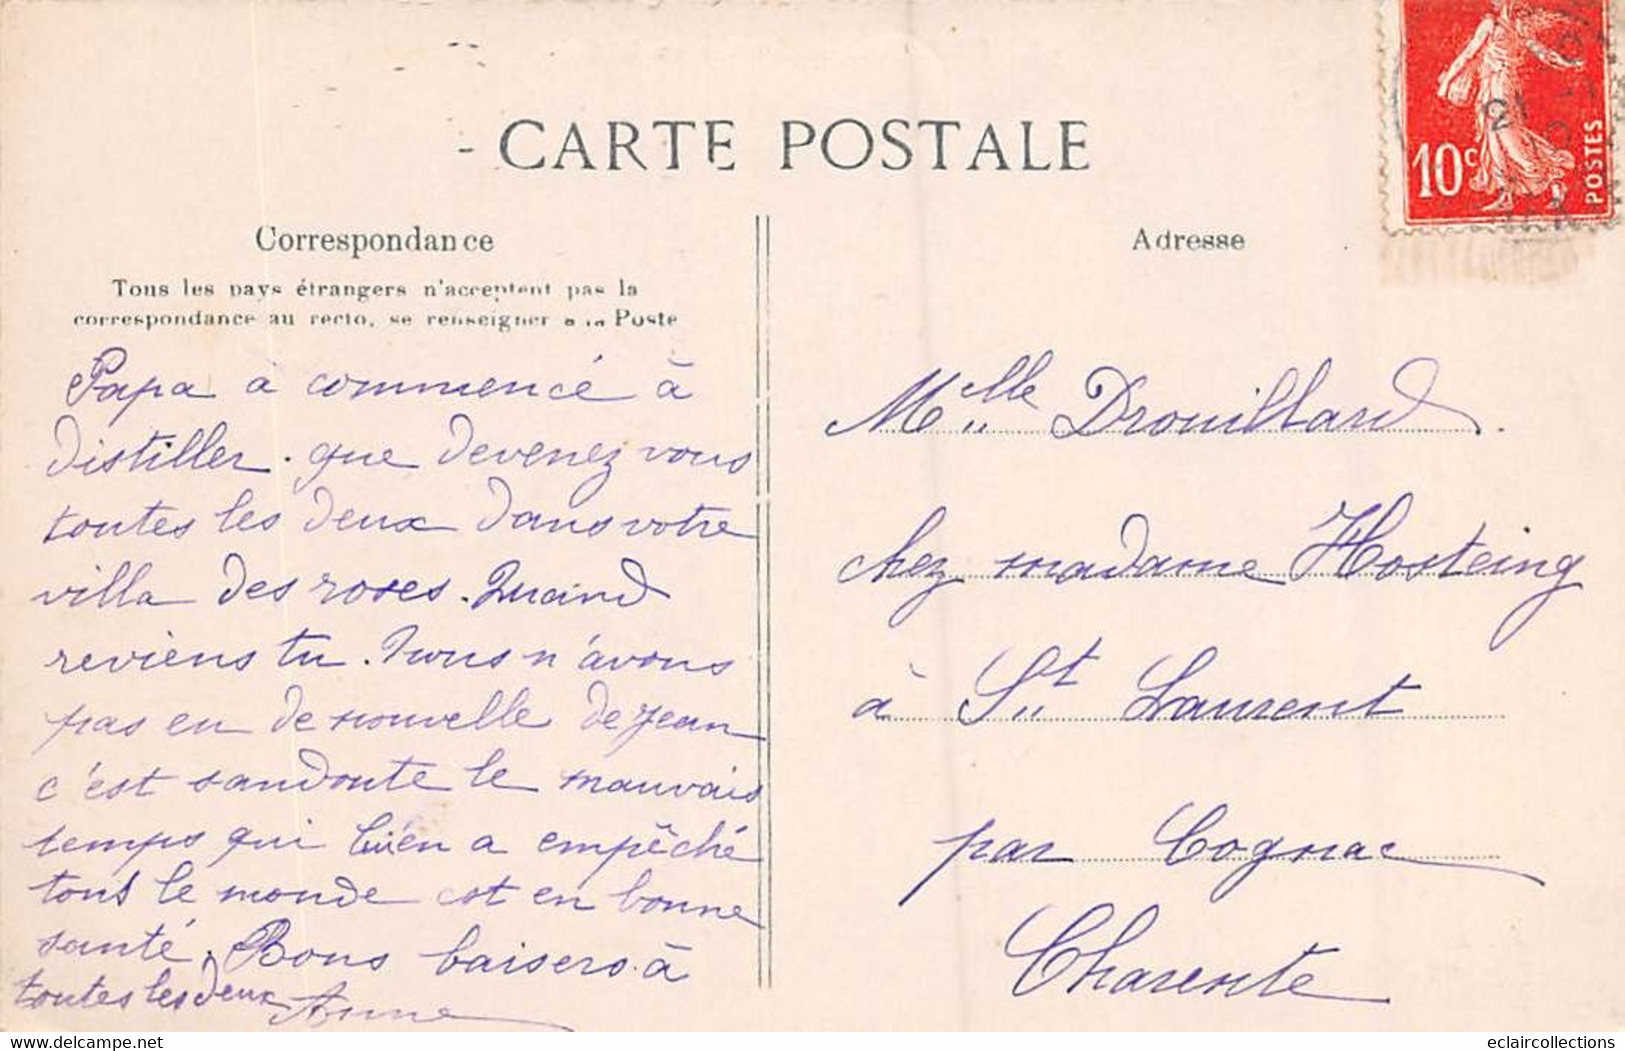 CARTE POSTALE
10c
POSTES
21
Correspondance
Tous les pays étrangers n'acceptent pas la
correspondance au recto, se renseigner à la Poste
Papa a commencé à
distiller. que devenez vous
toutes les deux dans votre
villa des roses. Quand
reviens tu. Nous n'avons
pas eu de nouvelle de jean
c'est sandoute le mauvais
temps qui l'en a empêché
tout le monde est en bonne
santé. Bons baisers à
toutes les deux Anne
Adresse
Melle Drouillard.
chez madame Hosteing
à St Laurent
par Cognac
Charente
www.delcampe.net
eclaircollections